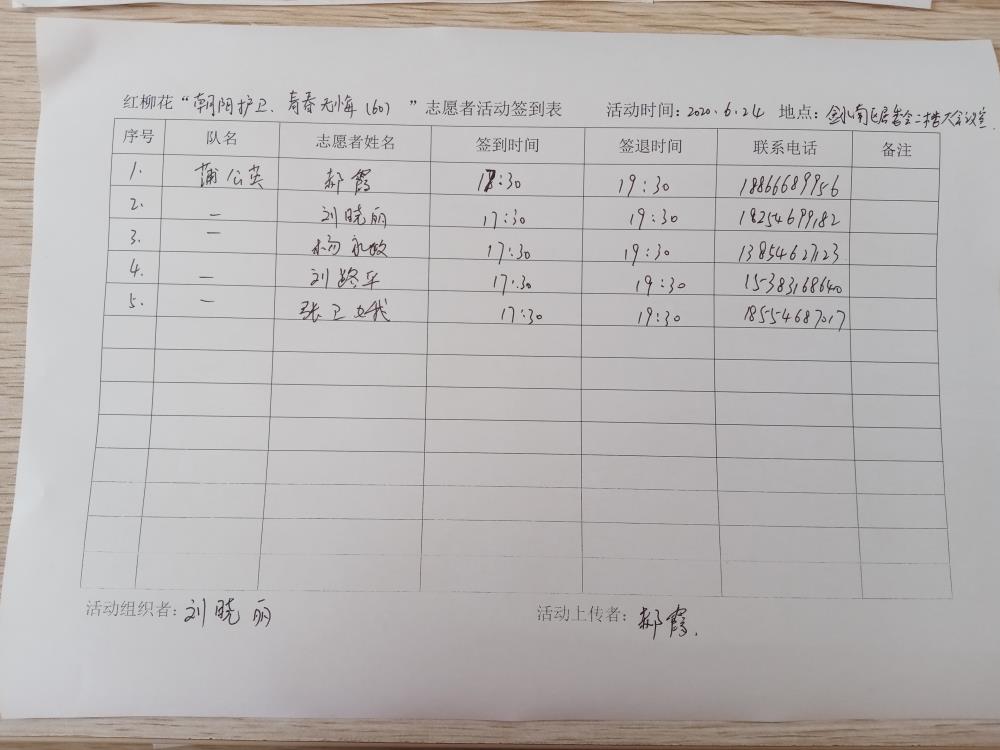 红柳花“朝阳护卫、青春无悔(60) ”志愿者活动签到表 活动时间:2020.6.24 地点:
序号 队名 志愿者姓名 签到时间 签退时间 联系电话 备注
1. 蒲公英 郝霞 17:30 19:30 18866689956
2. — 刘晓丽 17:30 19:30 18254699182
3. — 杨 17:30 19:30 13854627123
4. — 刘 17:30 19:30 15383168640
5. — 张卫 17:30 19:30 18554687017
活动组织者:刘晓丽 活动上传者:郝霞.